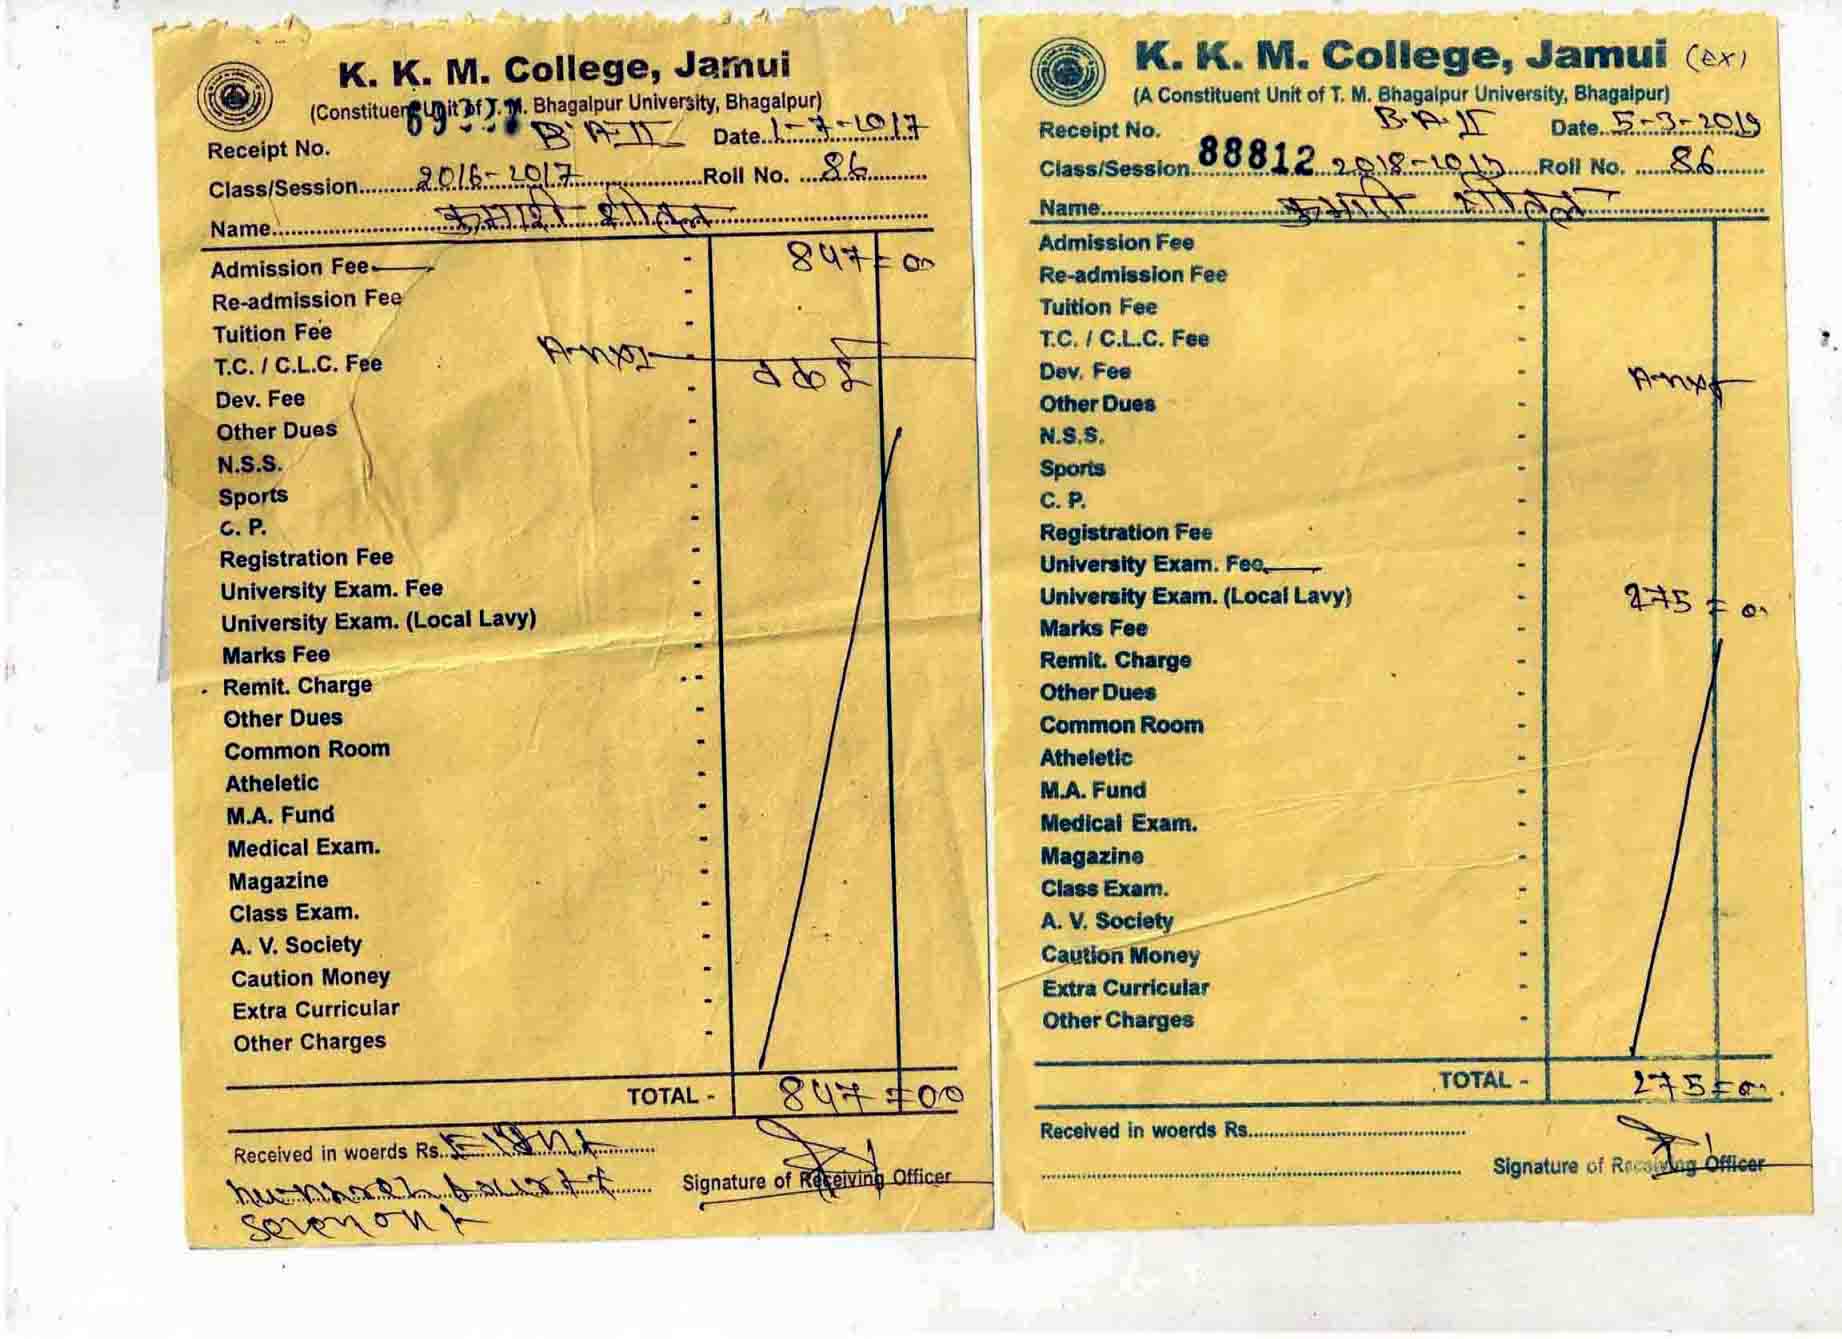 K. K. M. College, Jamui
(Constituent Unit of T. M. Bhagalpur University, Bhagalpur)
Receipt No. B.A-II Date..1-7-2017
Class/Session..........2016-2017..........Roll No. ...86..........
Name....................कुमारी शीतल....................
Admission Fee - 847=00
Re-admission Fee -
Tuition Fee -
T.C. / C.L.C. Fee -
Dev. Fee -
Other Dues -
N.S.S. -
Sports -
C. P. -
Registration Fee -
University Exam. Fee -
University Exam. (Local Lavy) -
Marks Fee -
Remit. Charge -
Other Dues -
Common Room -
Atheletic -
M.A. Fund -
Medical Exam. -
Magazine -
Class Exam. -
A. V. Society -
Caution Money -
Extra Curricular -
Other Charges -
TOTAL - 847=00
Received in woerds Rs..Eight
hundred fourty
Signature of Receiving Officer
K. K. M. College, Jamui (ex)
(A Constituent Unit of T. M. Bhagalpur University, Bhagalpur)
Receipt No. B.A-II Date..5-3-2019
Class/Session 88812 2018-2019 Roll No. ......86........
Name....................कुमारी शीतल....................
Admission Fee -
Re-admission Fee -
Tuition Fee -
T.C. / C.L.C. Fee -
Dev. Fee -
Other Dues -
N.S.S. -
Sports -
C. P. -
Registration Fee -
University Exam. Fee -
University Exam. (Local Lavy) - 275=00
Marks Fee -
Remit. Charge -
Other Dues -
Common Room -
Atheletic -
M.A. Fund -
Medical Exam. -
Magazine -
Class Exam. -
A. V. Society -
Caution Money -
Extra Curricular -
Other Charges -
TOTAL - 275=00
Received in woerds Rs..............................
Signature of Receiving Officer